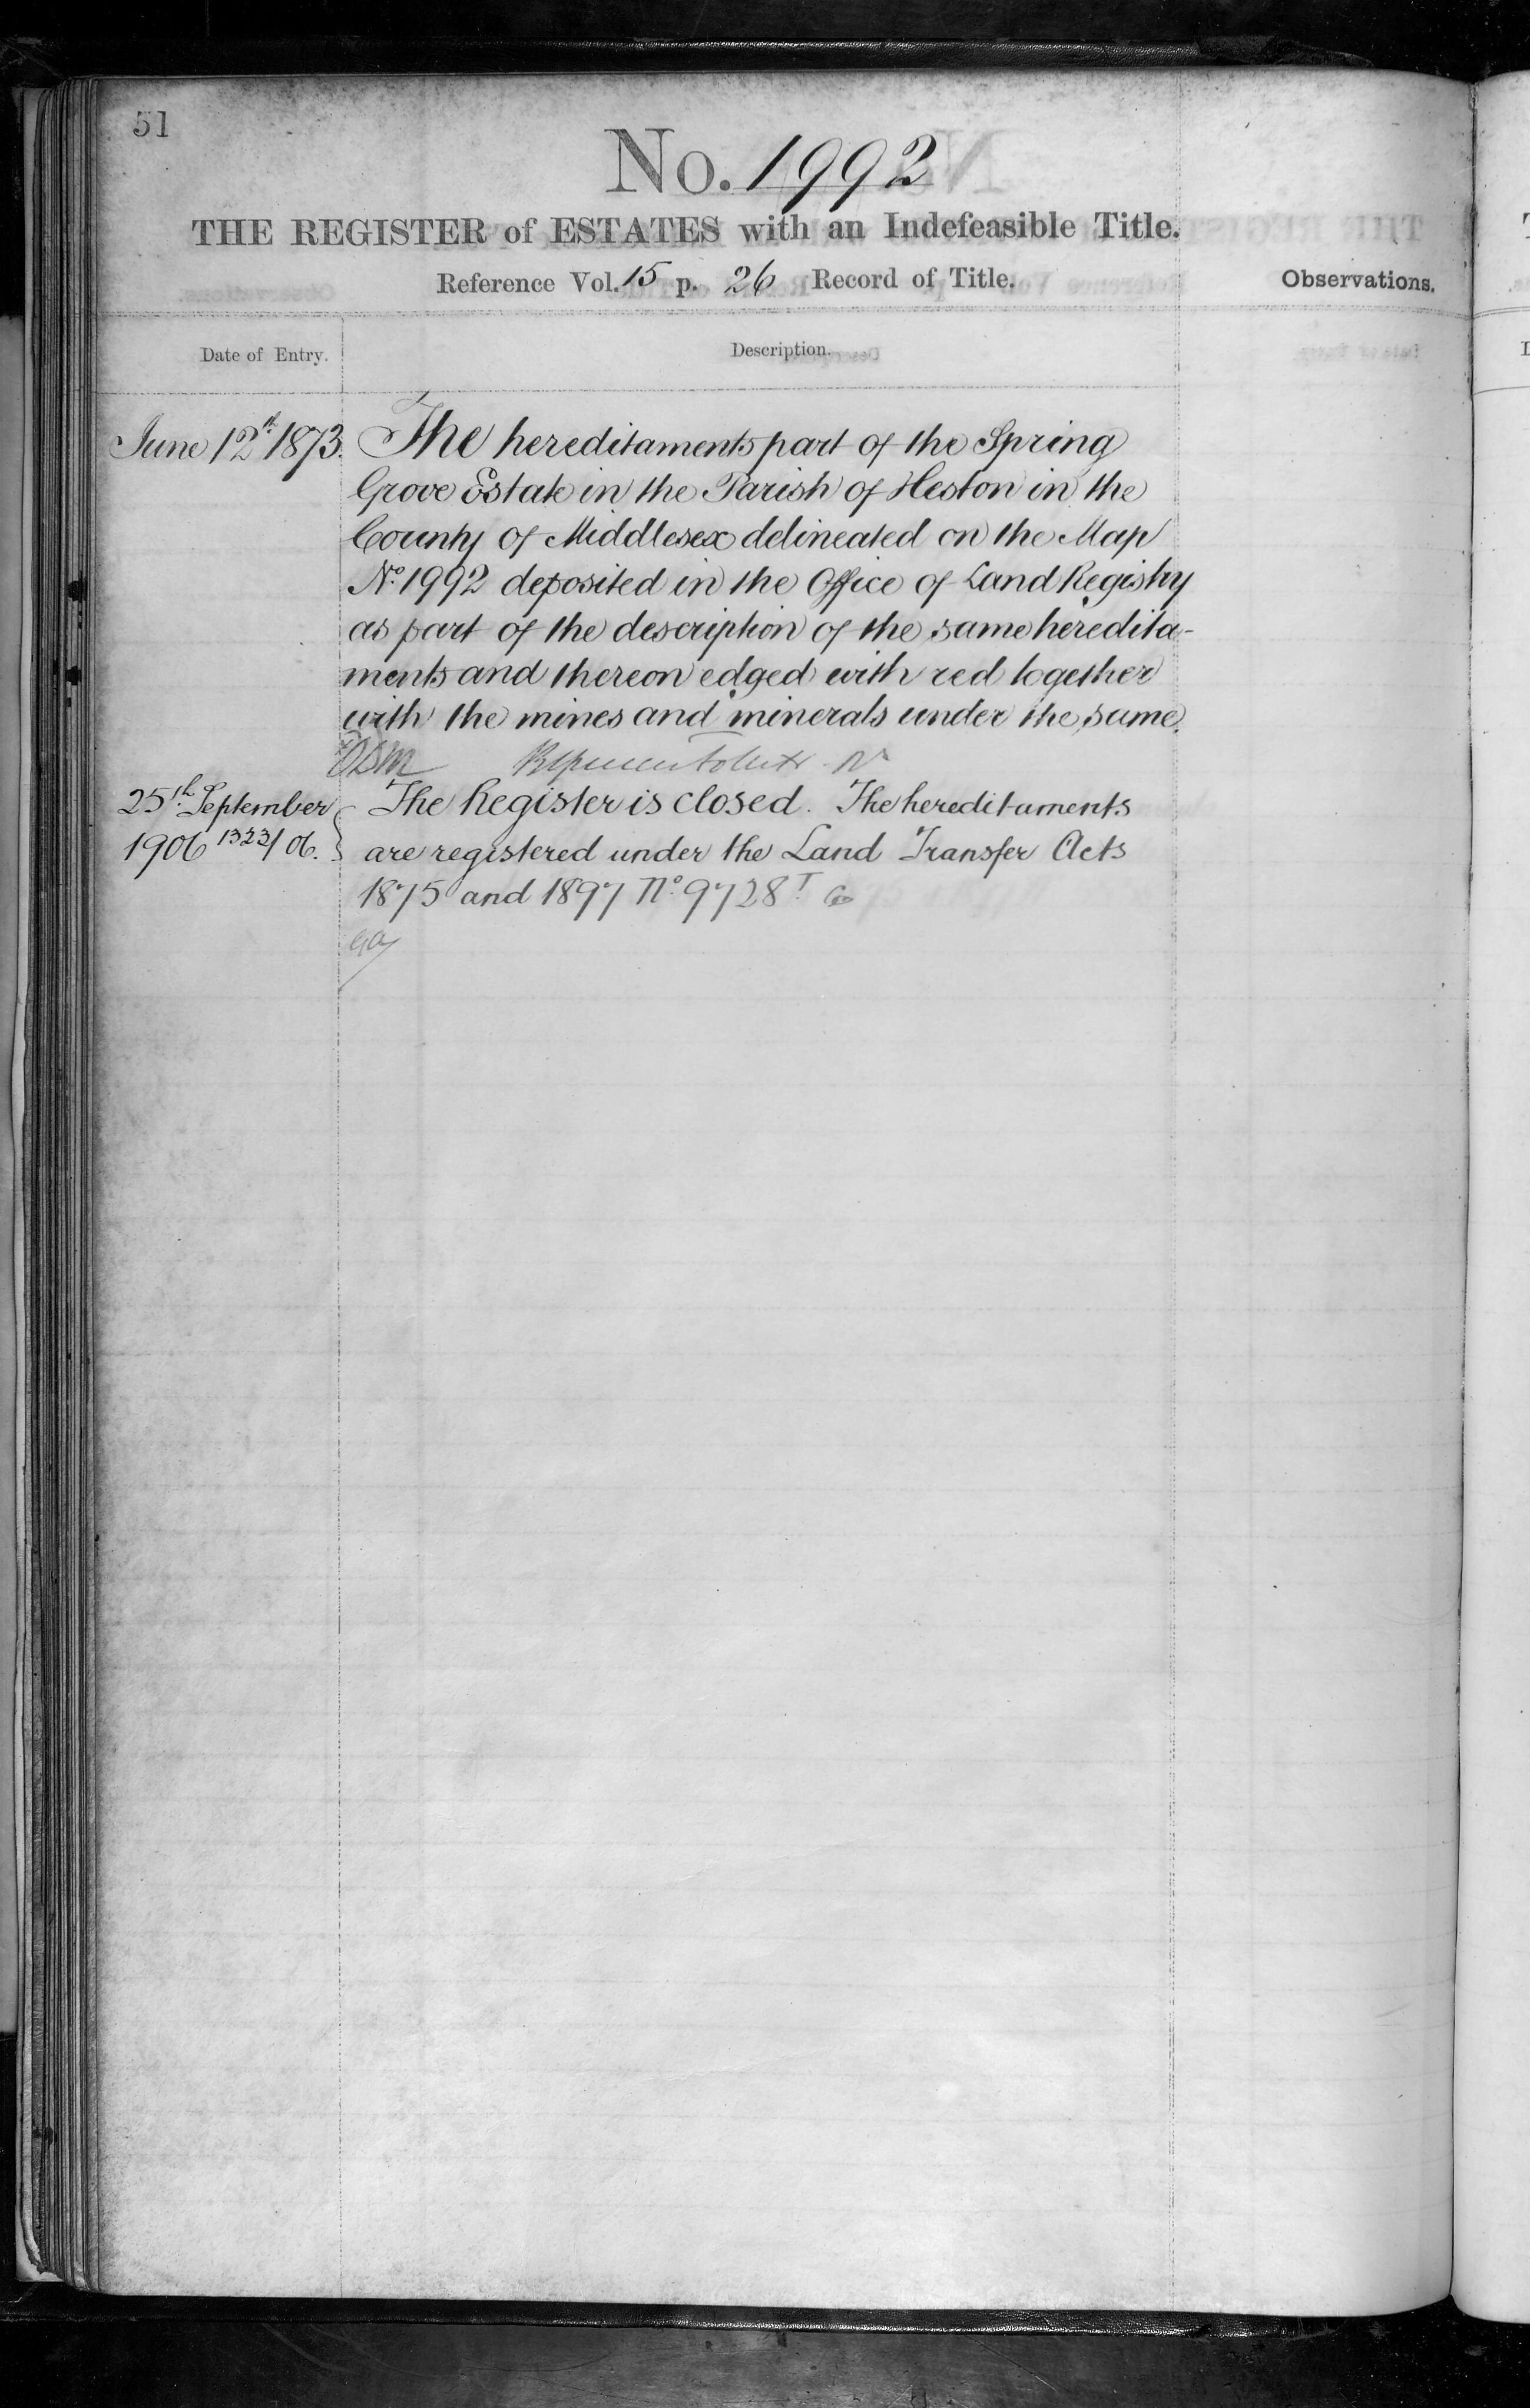 51
No. 1992
THE REGISTER of ESTATES with an Indefeasible Title.
Reference Vol. 15 p. 26 Record of Title.
Observations.
Date of Entry.
Description.
June 12th 1873.
The hereditaments part of the Spring
Grove Estate in the Parish of Heston in the
County of Middlesex delineated on the Map
No. 1992 deposited in the Office of Land Registry
as part of the description of the same heredita-
ments and thereon edged with red together
with the mines and minerals under the same.
25th September
1906 1323/06.
The Register is closed. The hereditaments
are registered under the Land Transfer Acts
1875 and 1897 No. 9728T